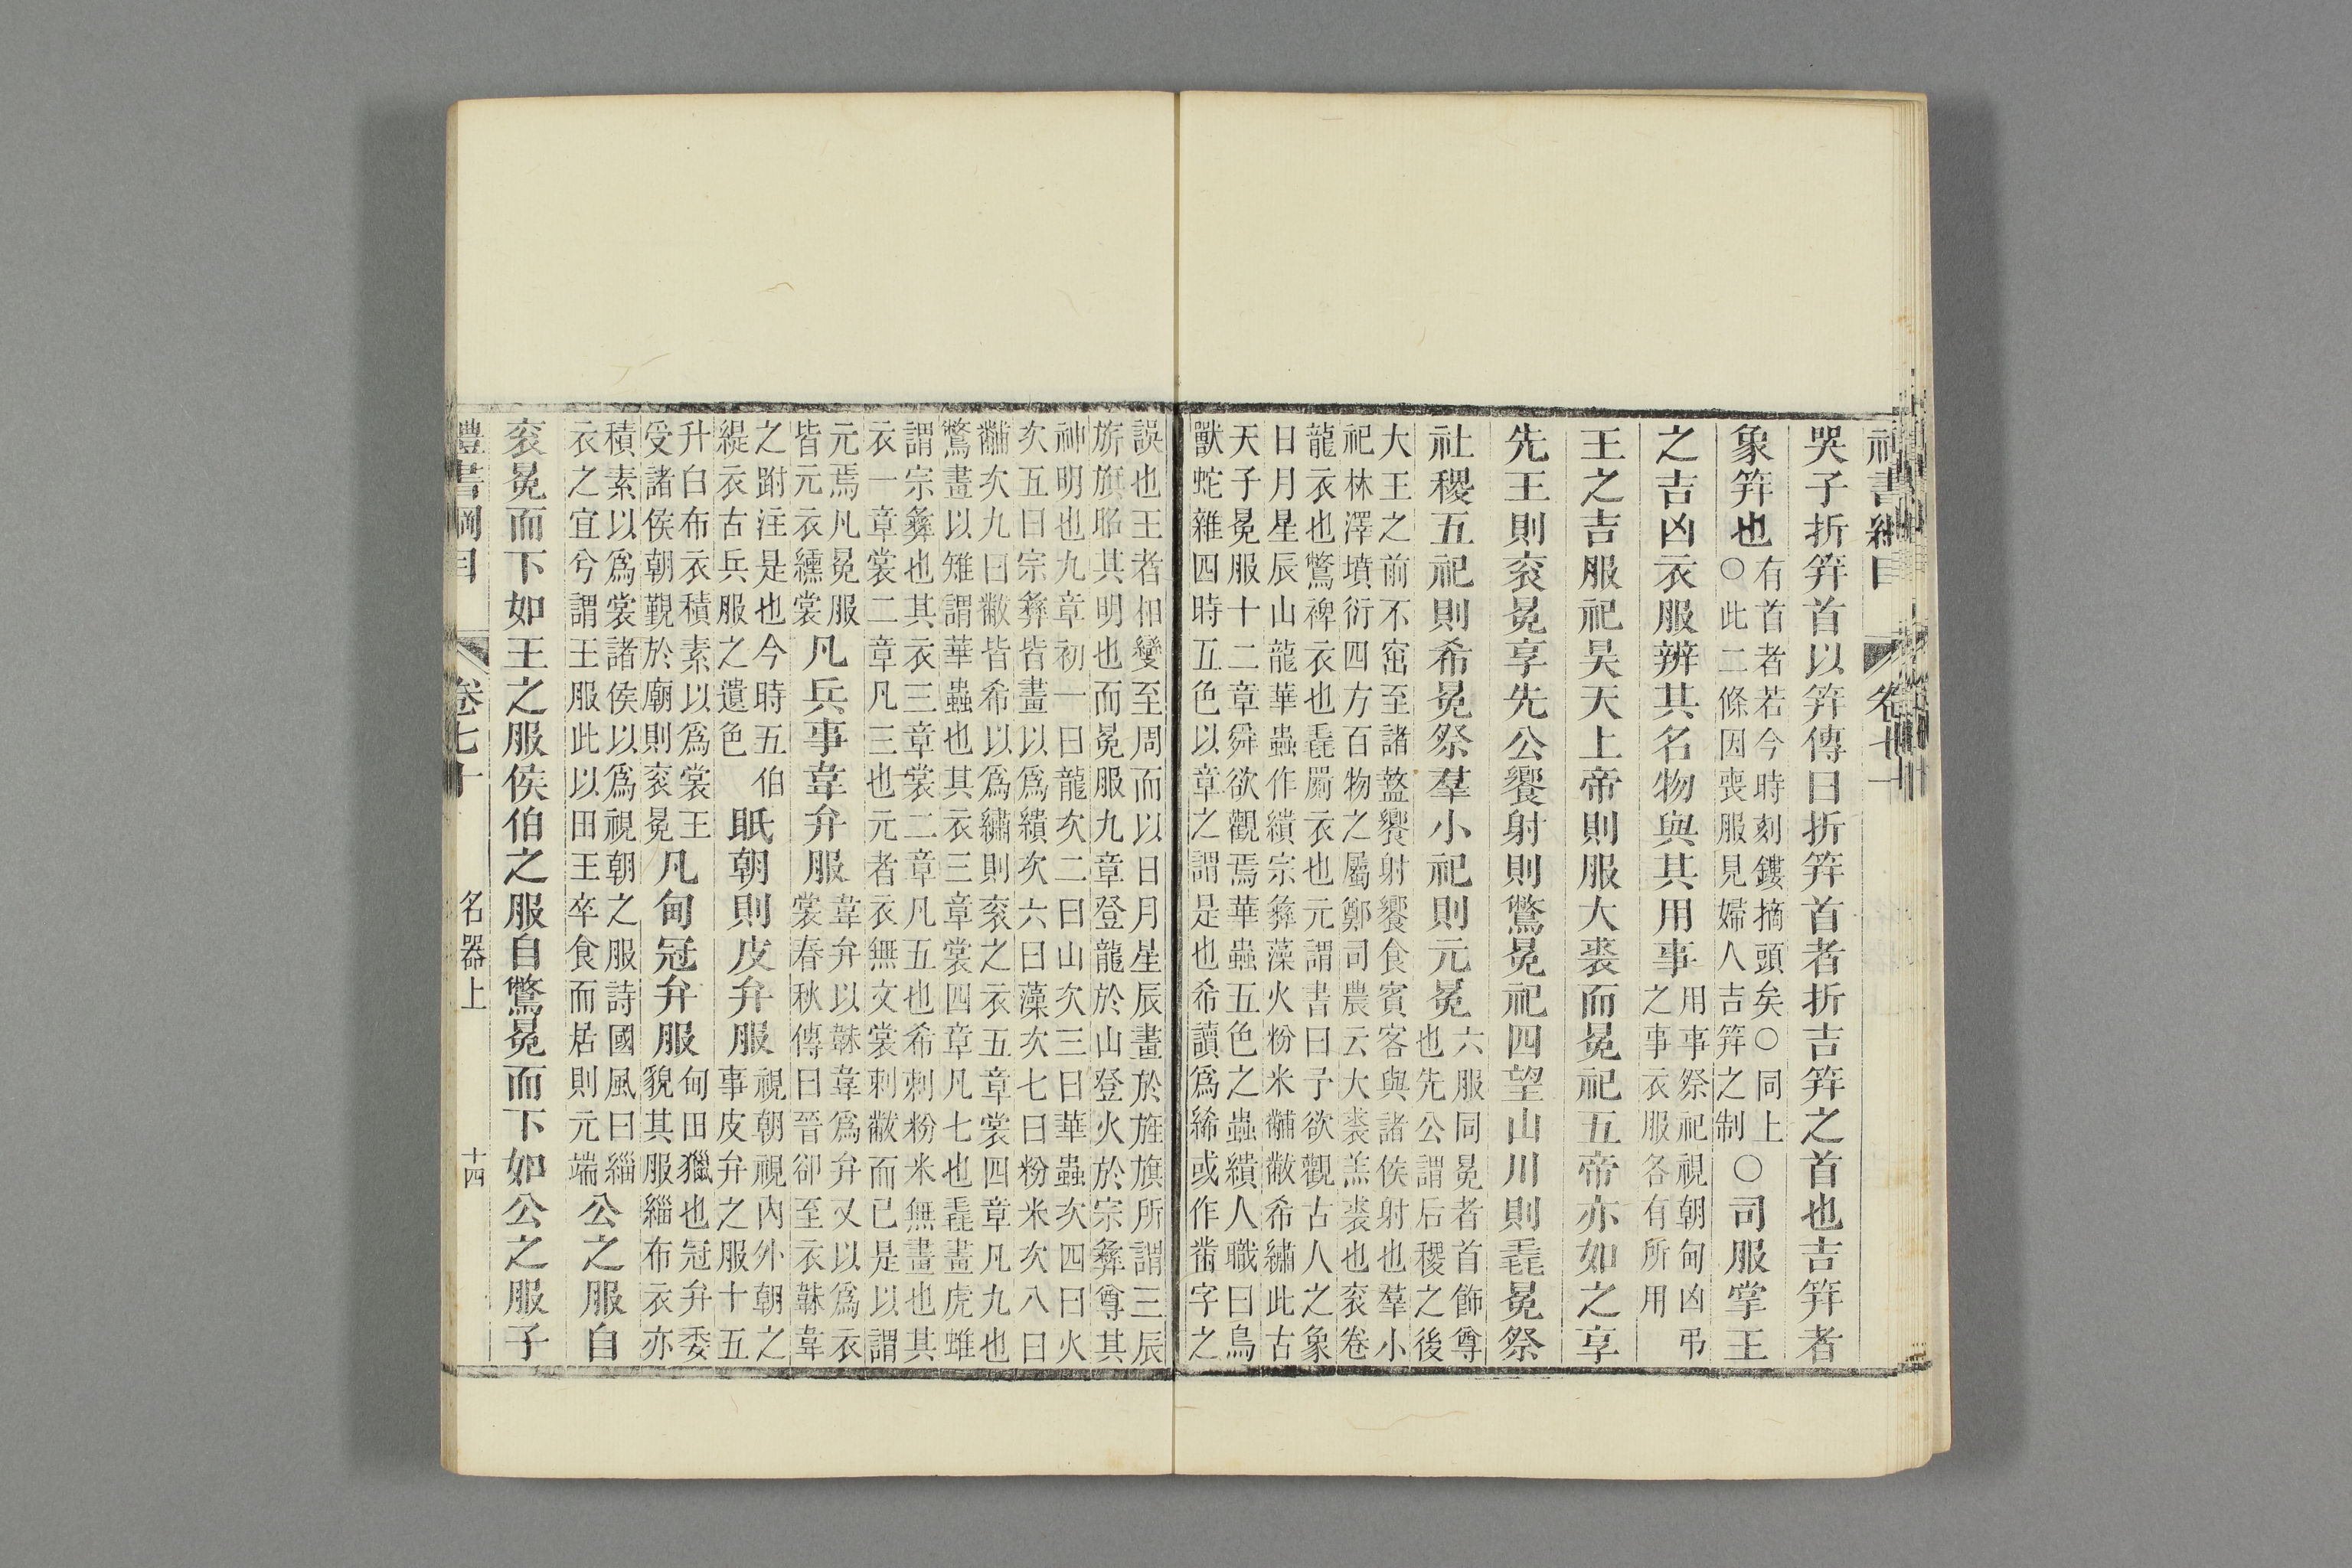 哭子折筓首以筓傳曰折筓首者折吉筓之首也吉筓者
象筓也有首者若今時刻鏤摘頭矣○同上
○此二條因喪服見婦人吉筓之制○司服掌王
之吉凶衣服辨其名物與其用事用事祭祀視朝甸凶弔
之事衣服各有所用
王之吉服祀昊天上帝則服大裘而冕祀五帝亦如之享
先王則衮冕享先公饗射則鷩冕祀四望山川則毳冕祭
社稷五祀則希冕祭羣小祀則元冕六服同冕者首飾尊
也先公謂后稷之後
大王之前不窋至諸盩饗射饗食賓客與諸侯射也羣小
祀林澤墳衍四方百物之屬鄭司農云大裘羔裘也衮卷
龍衣也鷩裨衣也毳罽衣也元謂書曰予欲觀古人之象
日月星辰山龍華蟲作繢宗彝藻火粉米黼黻希繡此古
天子冕服十二章舜欲觀焉華蟲五色之蟲繢人職曰鳥
獸蛇雜四時五色以章之謂是也希讀爲絺或作黹字之
誤也王者相變至周而以日月星辰畫於旌旗所謂三辰
旂旗昭其明也而冕服九章登龍於山登火於宗彝尊其
神明也九章初一曰龍次二曰山次三曰華蟲次四曰火
次五曰宗彝皆畫以爲繢次六曰藻次七曰粉米次八曰
黼次九曰黻皆希以爲繡則衮之衣五章裳四章凡九也
鷩畫以雉謂華蟲也其衣三章裳四章凡七也毳畫虎蜼
謂宗彝也其衣三章裳二章凡五也希刺粉米無畫也其
衣一章裳二章凡三也元者衣無文裳刺黻而已是以謂
元焉凡冕服
皆元衣纁裳凡兵事韋弁服韋弁以韎韋爲弁又以爲衣
裳春秋傳曰晉卻至衣韎韋
之跗注是也今時五伯
緹衣古兵服之遺色眡朝則皮弁服視朝視內外朝之
事皮弁之服十五
升白布衣積素以爲裳王
受諸侯朝覲於廟則衮冕凡甸冠弁服甸田獵也冠弁委
貌其服緇布衣亦
積素以爲裳諸侯以爲視朝之服詩國風曰緇
衣之宜兮謂王服此以田王卒食而居則元端公之服自
衮冕而下如王之服侯伯之服自鷩冕而下如公之服子
禮書綱目 卷七十 名器上 十四